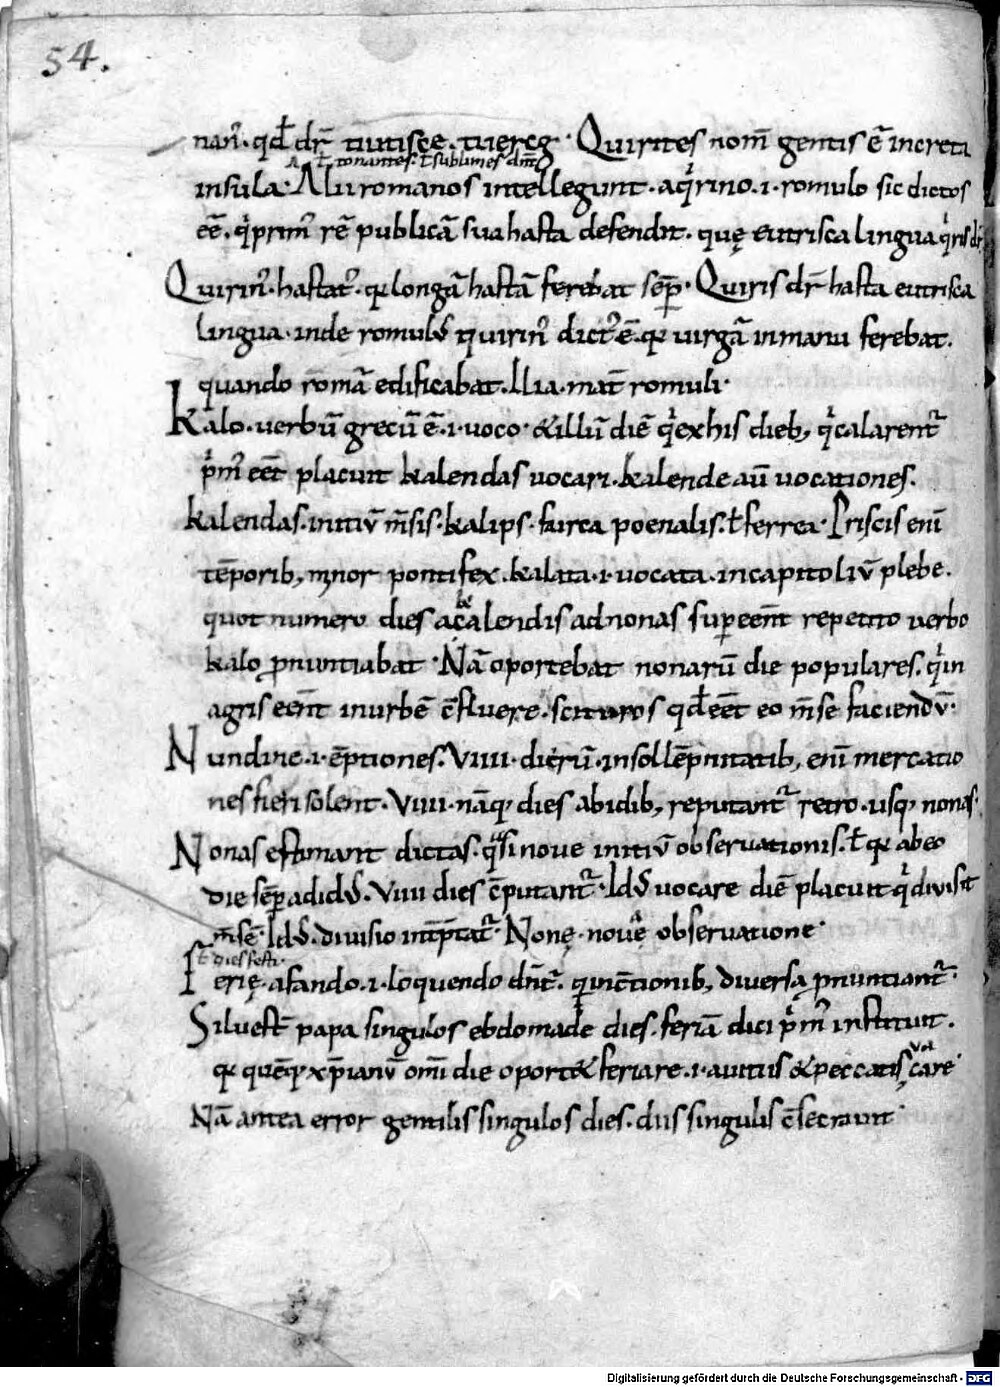 54.
nan̄. qđ dr̄ tiutisce. tuercg. Quirites nom̄ gentis ē increta
ł tonantes. ł sublimes dn̄t
insula. Alii romanos intellegunt. aqͥrino .i. romulo sic dictos
eē. qͥ prim᷒ rē publicā sua hasta defendit. quę eutrisca lingua qͥris dr̄
Quirin᷒. hastat᷒. qꝫ longā hastā ferebat sēp. Quiris dr̄ hasta eutrisca
lingua. inde romulus quirin᷒ dict᷒ ē. qꝫ uirgā in manu ferebat.
quando romā edificabat. Ilia. mat̄ romuli.
Kalo. uerbū grecū ē .i. uoco. & illū diē qͥ ex his dieb; qͥ calarent᷑
pͥm᷒ eēt placuit kalendas uocari. kalende aū uocationes.
kalendas. initiū m̄sis. kalips. furca poenalis. ł ferrea. Priscis eni
tēporib; minor pontifex. kalata .i. uocata. in capitoliū plebe.
quot numero dies a calendis ad nonas supeēnt repetito uerbo
kalo ꝓnuntiabat. Nā oportebat nonarū die populares. qͥ in
agris eēnt in urbē c̄fluere. scituros qđ eēt eo m̄se faciendū.
Nundine .i. ēptiones. VIIII. dierū. in sollēpnitatib; eni mercatio
nes fieri solent. VIIII. nāqꝫ dies ab idib; reputant᷑ retro. usqꝫ nonas.
Nonas estimant dictas. qͣsi noue initiū obseruationis. ł qꝫ ab eo
die sēp ad idus. VIIII dies c̄putant᷑. Idus uocare diē placuit qͥ diuisit
m̄sē. Idus. diuisio int̄p̄tat᷑. Nonę. nouę obseruatione.
ł dies festi.
Ferię. a fando .i. loquendo dn̄t᷑. qꝫ in c̄tionib; diuersa ꝓnuntiant᷑.
Siluest̄ papa singulos ebdomade dies. feriā dici pͥm᷒ instituit.
qꝫ quēqꝫ xp̄ianū omī die oport& feriare .i. a uitiis & peccatis uacare.
Nā antea error gentilis singulos dies. diis singulis c̄secrauit.
Digitalisierung gefördert durch die Deutsche Forschungsgemeinschaft - DFG